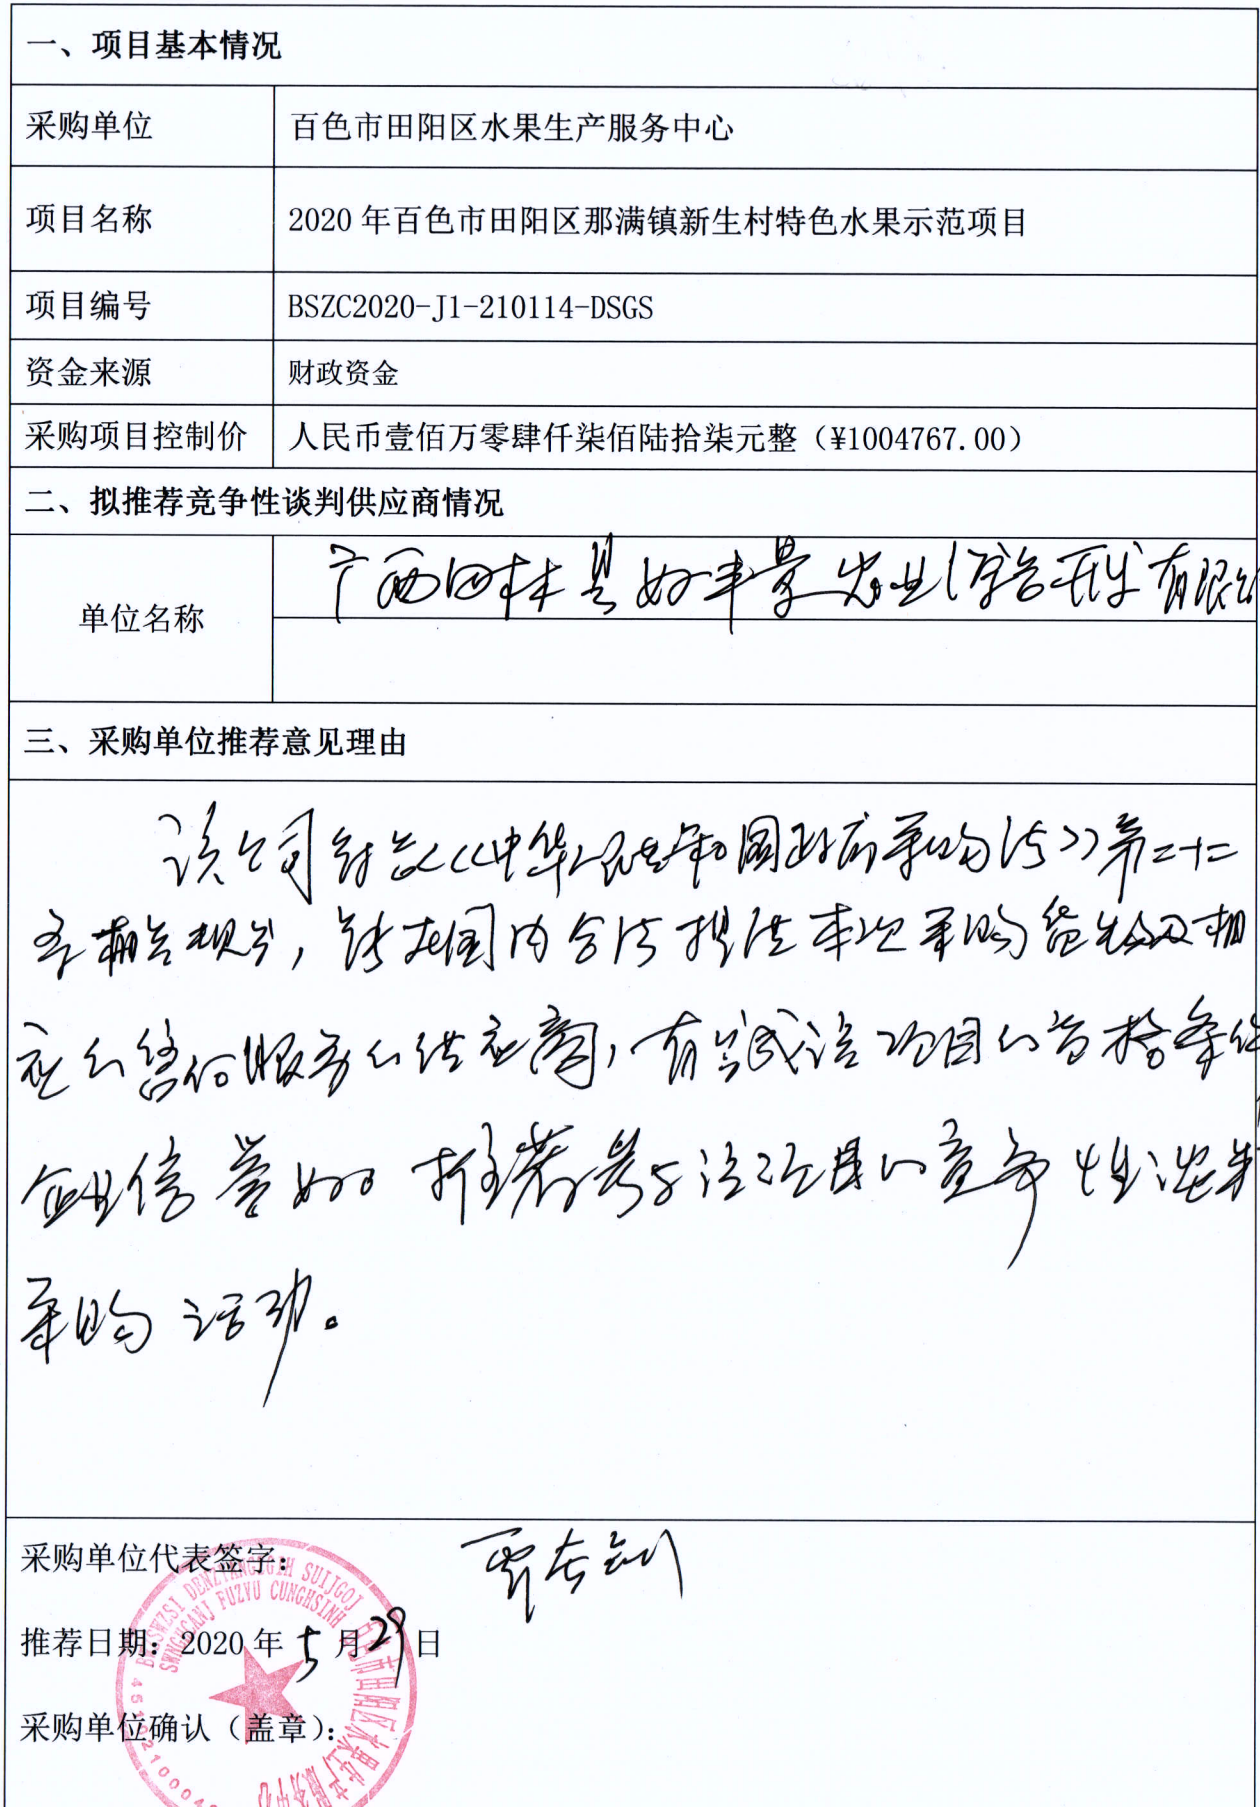 一、项目基本情况
采购单位 百色市田阳区水果生产服务中心
项目名称 2020年百色市田阳区那满镇新生村特色水果示范项目
项目编号 BSZC2020-J1-210114-DSGS
资金来源 财政资金
采购项目控制价 人民币壹佰万零肆仟柒佰陆拾柒元整（¥1004767.00）
二、拟推荐竞争性谈判供应商情况
单位名称 广西田林县好丰景农业综合开发有限公
三、采购单位推荐意见理由
该公司符合《中华人民共和国政府采购法》第二十二
条相关规定，能在国内合法提供本次采购货物及相
应的售后服务的供应商，有完成该项目的资格条件
企业信誉好。推荐参与该项目的竞争性谈判
采购活动。
采购单位代表签字：
推荐日期：2020年5月29日
采购单位确认（盖章）：
BWZSWZSI DENZYANGZGIH SUIJGOJ
SWNGHCANJ FUZVU CUNGHSINH
百色市田阳区水果生产服务中心